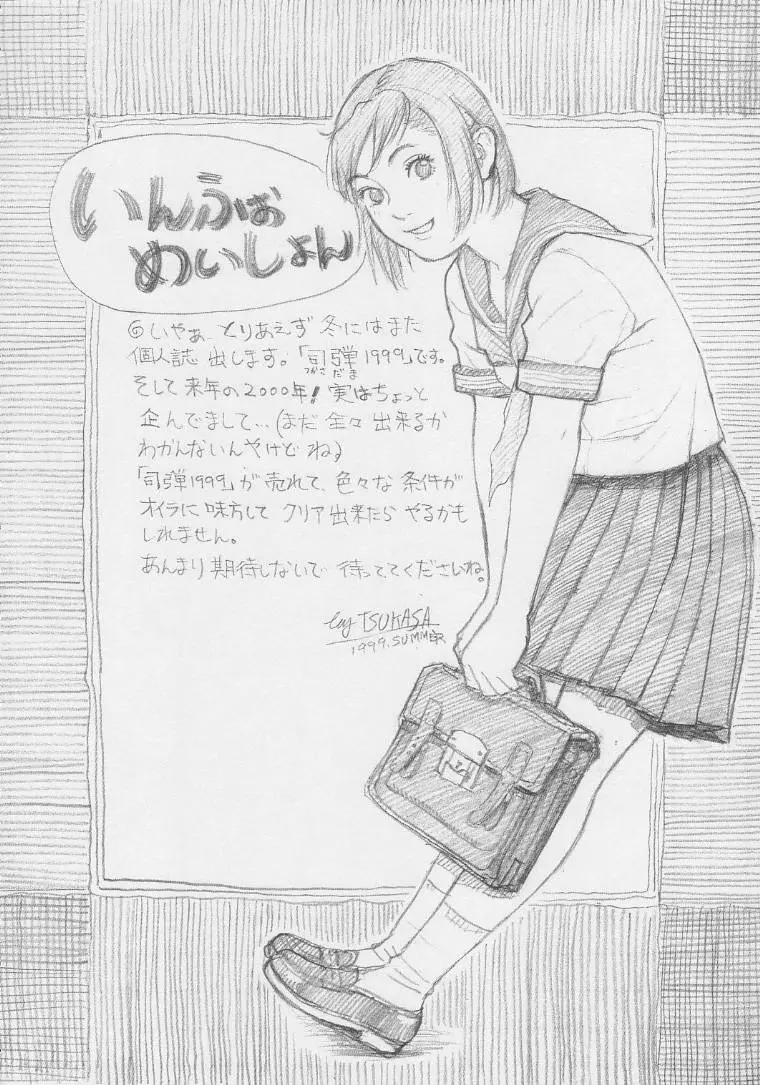 いんふぉ
めいしょん
◎いやぁ とりあえず 冬にはまた
個人誌 出します。「司弾1999」です。
つかさ だま
そして 来年の2000年! 実はちょっと
企んでまして…(まだ 全々 出来るか
わかんないんやけど ね)
「司弾1999」が 売れて、色々な 条件が
オイラに 味方して クリア 出来たら やるかも
しれません。
あんまり 期待しないで 待っててくださいね。
by TSUKASA
1999.SUMMER